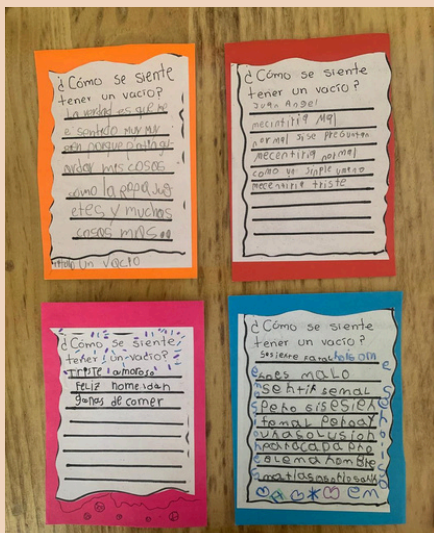 ¿Cómo se siente
tener un vacío?
la verdad es que me
e sentido muy muy
bien porque
ardar mis cosas
como la ropa jug
etes y muchas
cosas mas..
un vacio
¿Cómo se siente
tener un vacío?
Juan Angel
mecintiria mal
normal si se preguntan
mecentiria normal
como yo simple
mecentiria triste
¿Cómo se siente
tener un vacío?
triste amoroso
feliz nome dan
ganas de comer
¿Cómo se siente
tener un vacío?
noes malo
sentir semal
pero sisesien
temal poray
unasolusion
paracadapro
blema nombre
matias